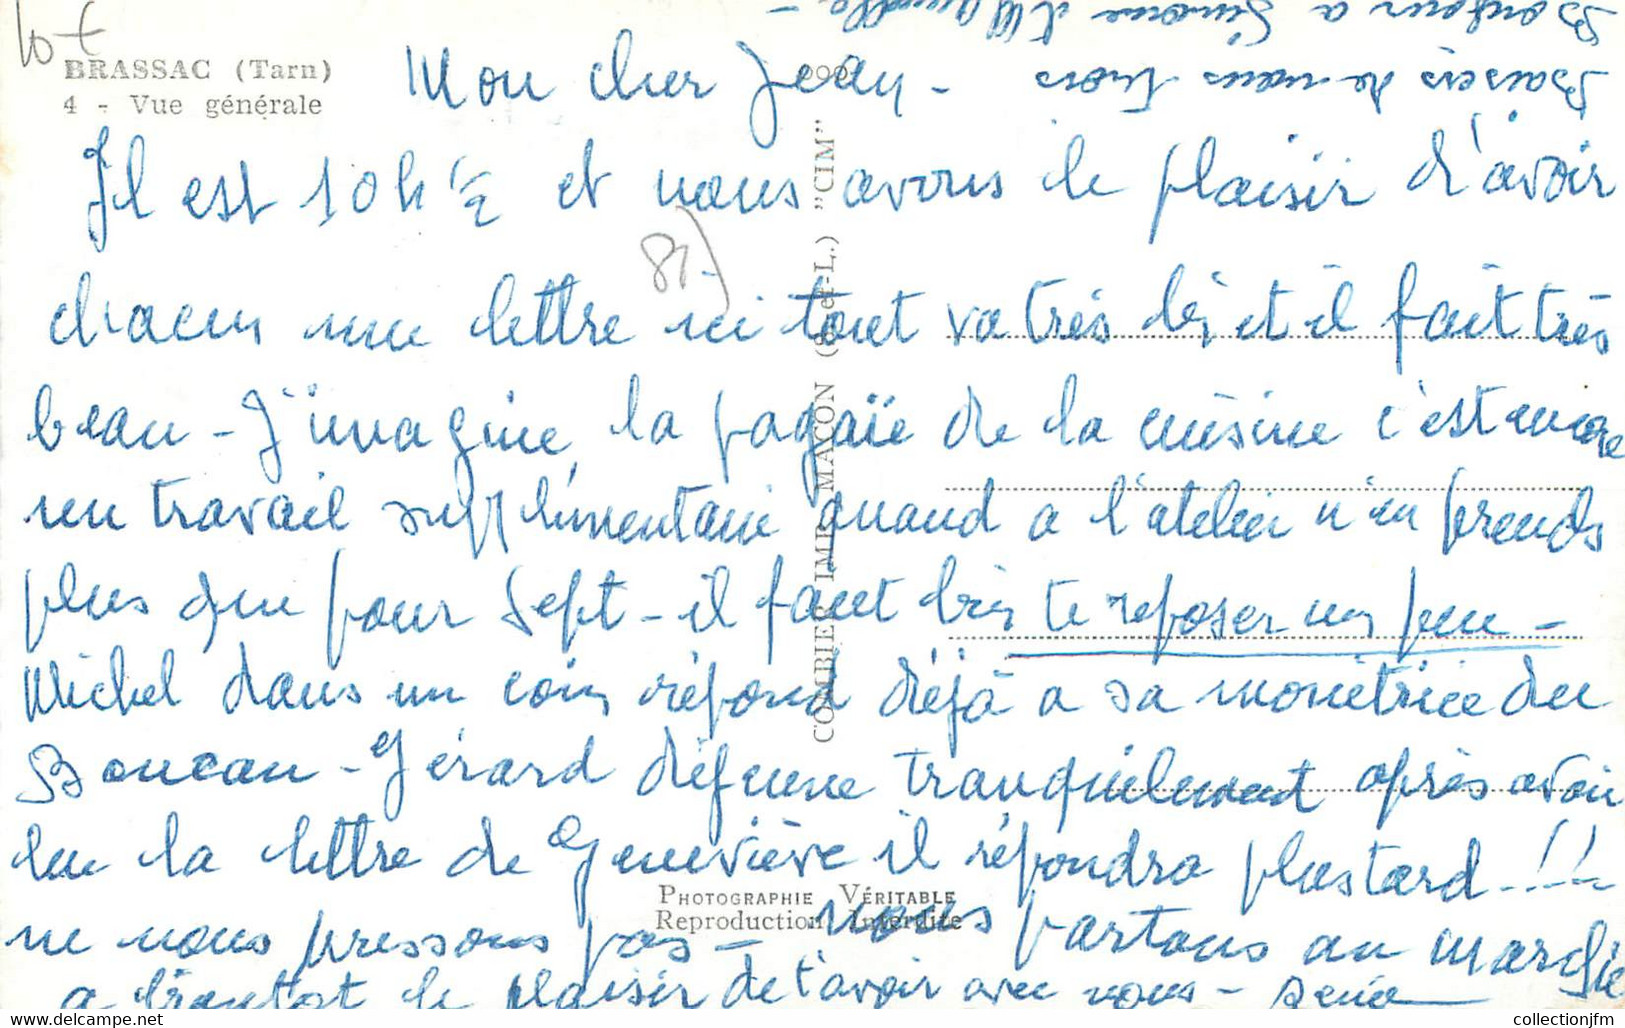 10 €
BRASSAC (Tarn)
4 - Vue générale
Mon cher Jean -
Il est 10 h 1/2 et nous avons le plaisir d'avoir
chacun une lettre ici tout va très bien et il fait très
beau - J'imagine la pagaïe de la cuisine c'est encore
un travail supplémentaire quand a l'atelier n'en prends
plus que pour sept - il faut bien te reposer un peu -
Michel dans un coin répond déjà a sa monitrice du
Boucau - Gérard déjeune tranquilement après avoir
lu la lettre de Geneviève il répondra plus tard - !!
ne nous pressons pas - nous partons au marché
a bientot le plaisir de t'avoir avec nous -
Baisers de nous trois
Bonjour a Simone
81)
COMBIER IMP. MACON (S.-et-L.) "CIM"
PHOTOGRAPHIE VÉRITABLE
Reproduction Interdite
collectionjfm